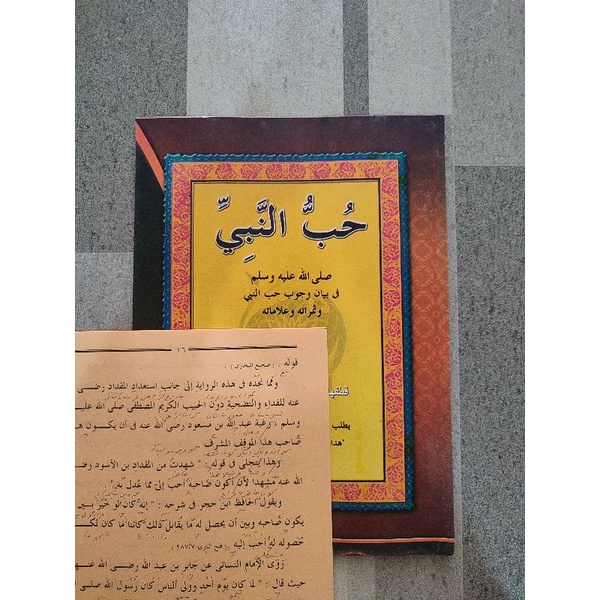 حُبُّ النَّبِيِّ
صلى الله عليه وسلم
فى بيان وجوب حب النبي
وثمراته وعلاماته
يطلب
١٦
قوله . (صحيح البخارى) .
ومما نجده فى هذه الرواية إلى جانب استعداد المقداد رضى
عنه للفداء والتضحية دون الحبيب الكريم المصطفى صلى الله عليه
وسلم رغبة عبد الله بن مسعود رضى الله عنه فى أن يكون ه
صاحب هذا الموقف المشرف
وهذا يتجلى فى قوله : " شهدت من المقداد بن الأسود رضى
الله عنه مشهدا لأن أكون صاحبه أحب إلى مما عدل به .
ويقول الحافظ ابن حجر فى شرحه : " إنه كان لو خير بين
يكون صاحبه وبين أن يحصل له ما يقابل ذلك كائنا ما كان لك
حصوله له أحب إليه . (فتح البارى ٢٨٧/٧)
روى الإمام النسائى عن جابر بن عبد الله رضى الله عنه
حيث قال : " لما كان يوم أحد وولى الناس كان رسول الله صلى ا